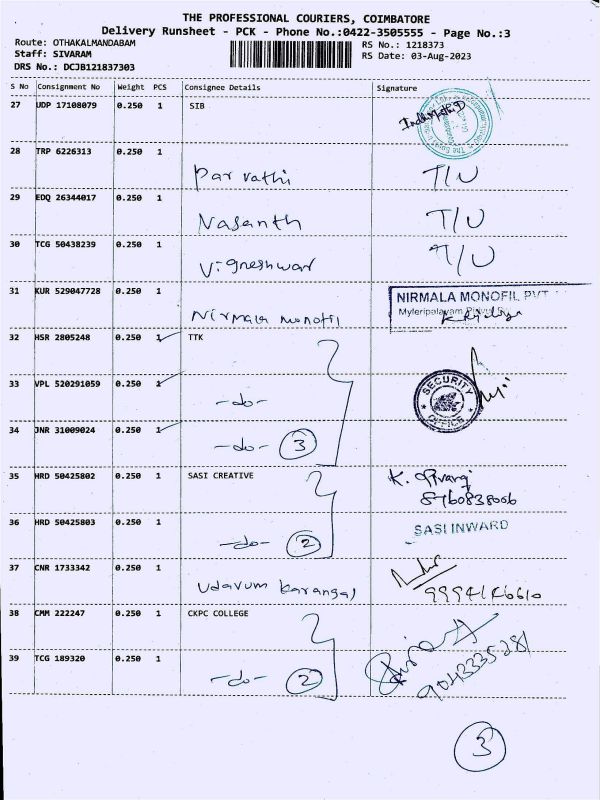 THE PROFESSIONAL COURIERS, COIMBATORE
Delivery Runsheet - PCK - Phone No.:0422-3505555 - Page No.:3
Route: OTHAKALMANDABAM
RS No.: 1218373
Staff: SIVARAM
RS Date: 03-Aug-2023
DRS No.: DCJB121837303
S No Consignment No Weight PCS Consignee Details Signature
27 UDP 17108079 0.250 1 SIB
28 TRP 6226313 0.250 1
Parvathi T/U
29 EDQ 26344017 0.250 1
Vasanth T/U
30 TCG 50438239 0.250 1
Vigneshwar T/U
31 KUR 529047728 0.250 1
NIRMALA MONOFIL PVT
Myleripalayam
Nirmala monofil
32 HSR 2805248 0.250 1 TTK
33 VPL 520291059 0.250 1
-do-
SECURITY OFFICE
34 JNR 31009024 0.250 1
-do- 3
35 HRD 50425802 0.250 1 SASI CREATIVE
K.
8760838006
36 HRD 50425803 0.250 1
SASI INWARD
-do- 2
37 CNR 1733342 0.250 1
Udavum Karangal
38 CMM 222247 0.250 1 CKPC COLLEGE
39 TCG 189320 0.250 1
-do- 2
9043335281
3